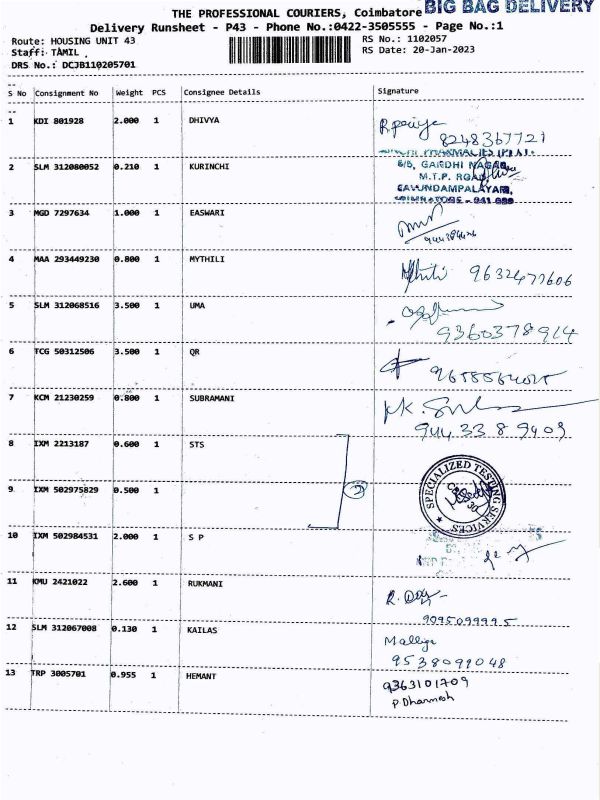 BIG BAG DELIVERY
THE PROFESSIONAL COURIERS, Coimbatore
Delivery Runsheet - P43 - Phone No.:0422-3505555 - Page No.:1
Route: HOUSING UNIT 43
RS No.: 1102057
Staff: TAMIL .
RS Date: 20-Jan-2023
DRS No.: DCJB110205701
S No Consignment No Weight PCS Consignee Details Signature
1 KDI 801928 2.000 1 DHIVYA
8248367721
2 SLM 312080052 0.210 1 KURINCHI
6/5, GANDHI NAGAR,
M.T.P. ROAD,
GAVUNDAMPALAYAM,
3 MGD 7297634 1.000 1 EASWARI
4 MAA 293449230 0.800 1 MYTHILI
9632477606
5 SLM 312068516 3.500 1 UMA
9360378914
6 TCG 50312506 3.500 1 QR
7 KCM 21230259 0.800 1 SUBRAMANI
944 33 8 9409
8 IXM 2213187 0.600 1 STS
SPECIALIZED TESTING SERVICES
9 IXM 502975829 0.500 1
2
10 IXM 502984531 2.000 1 S P
11 KMU 2421022 2.600 1 RUKMANI
9095099995
12 SLM 312067008 0.130 1 KAILAS
Malliga
9538099048
13 TRP 3005701 0.955 1 HEMANT
9363101709
P Dharmesh